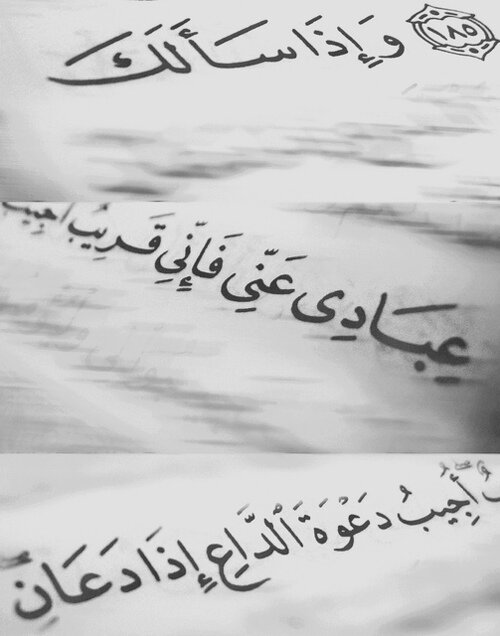 ١٨٥ وَإِذَا سَأَلَكَ
عِبَادِى عَنِّي فَإِنِّي قَرِيبٌ أُجِيبُ
أُجِيبُ دَعْوَةَ ٱلدَّاعِ إِذَا دَعَانِ